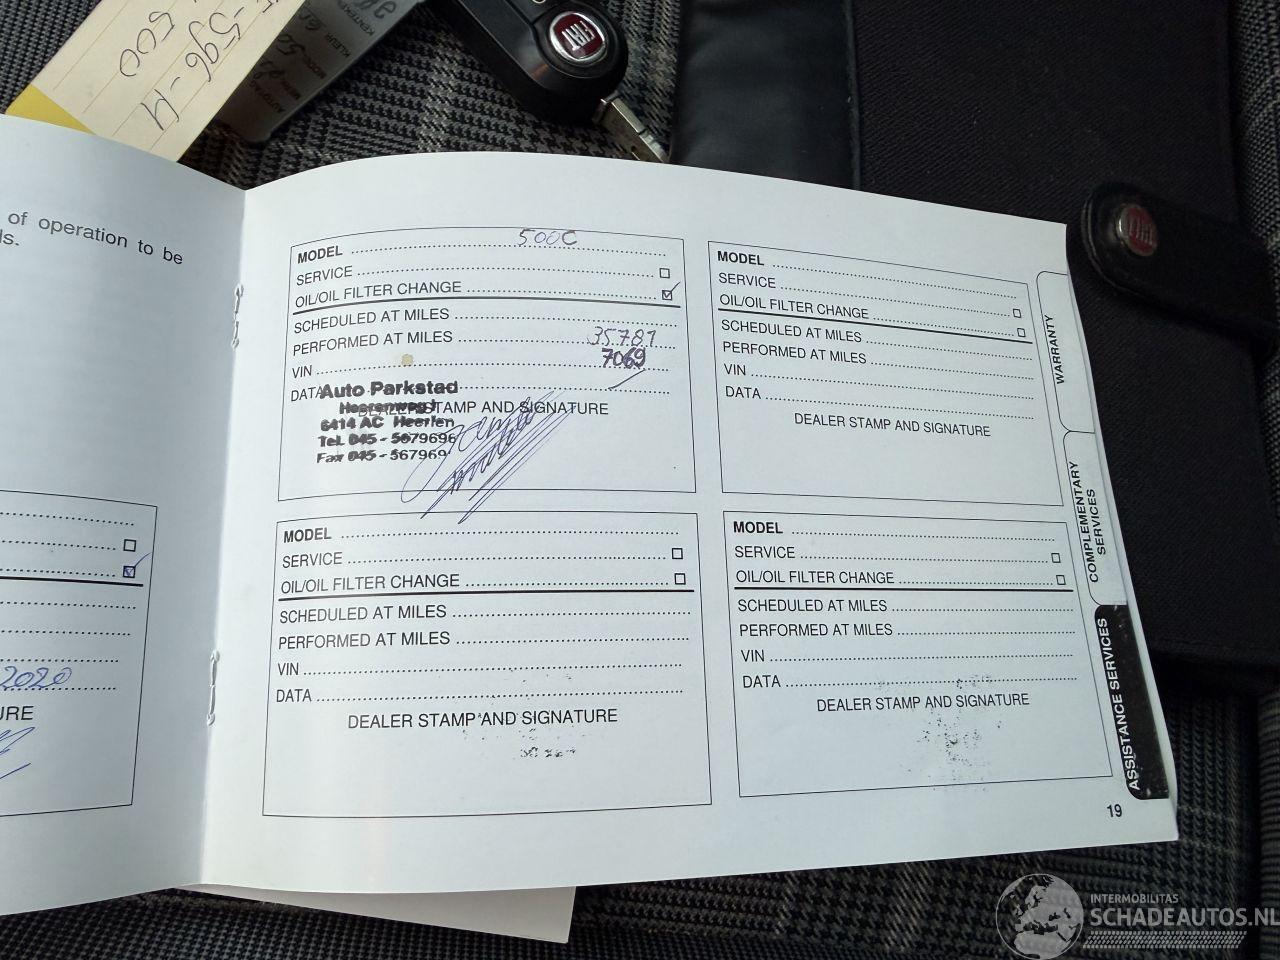 -596-H
500
FIAT
of operation to be
ls.
2020
URE
MODEL 500C
SERVICE
OIL/OIL FILTER CHANGE
SCHEDULED AT MILES
PERFORMED AT MILES 35781
VIN 7069
DATA
Auto Parkstad
Heerenweg
DEALER STAMP AND SIGNATURE
6414 AC Heerlen
Tel. 045 - 5679696
Fax 045 - 567969
MODEL
SERVICE
OIL/OIL FILTER CHANGE
SCHEDULED AT MILES
PERFORMED AT MILES
VIN
DATA
DEALER STAMP AND SIGNATURE
MODEL
SERVICE
OIL/OIL FILTER CHANGE
SCHEDULED AT MILES
PERFORMED AT MILES
VIN
DATA
DEALER STAMP AND SIGNATURE
MODEL
SERVICE
OIL/OIL FILTER CHANGE
SCHEDULED AT MILES
PERFORMED AT MILES
VIN
DATA
DEALER STAMP AND SIGNATURE
WARRANTY
COMPLEMENTARY
SERVICES
ASSISTANCE SERVICES
19
FIAT
INTERMOBILITAS
SCHADEAUTOS.NL